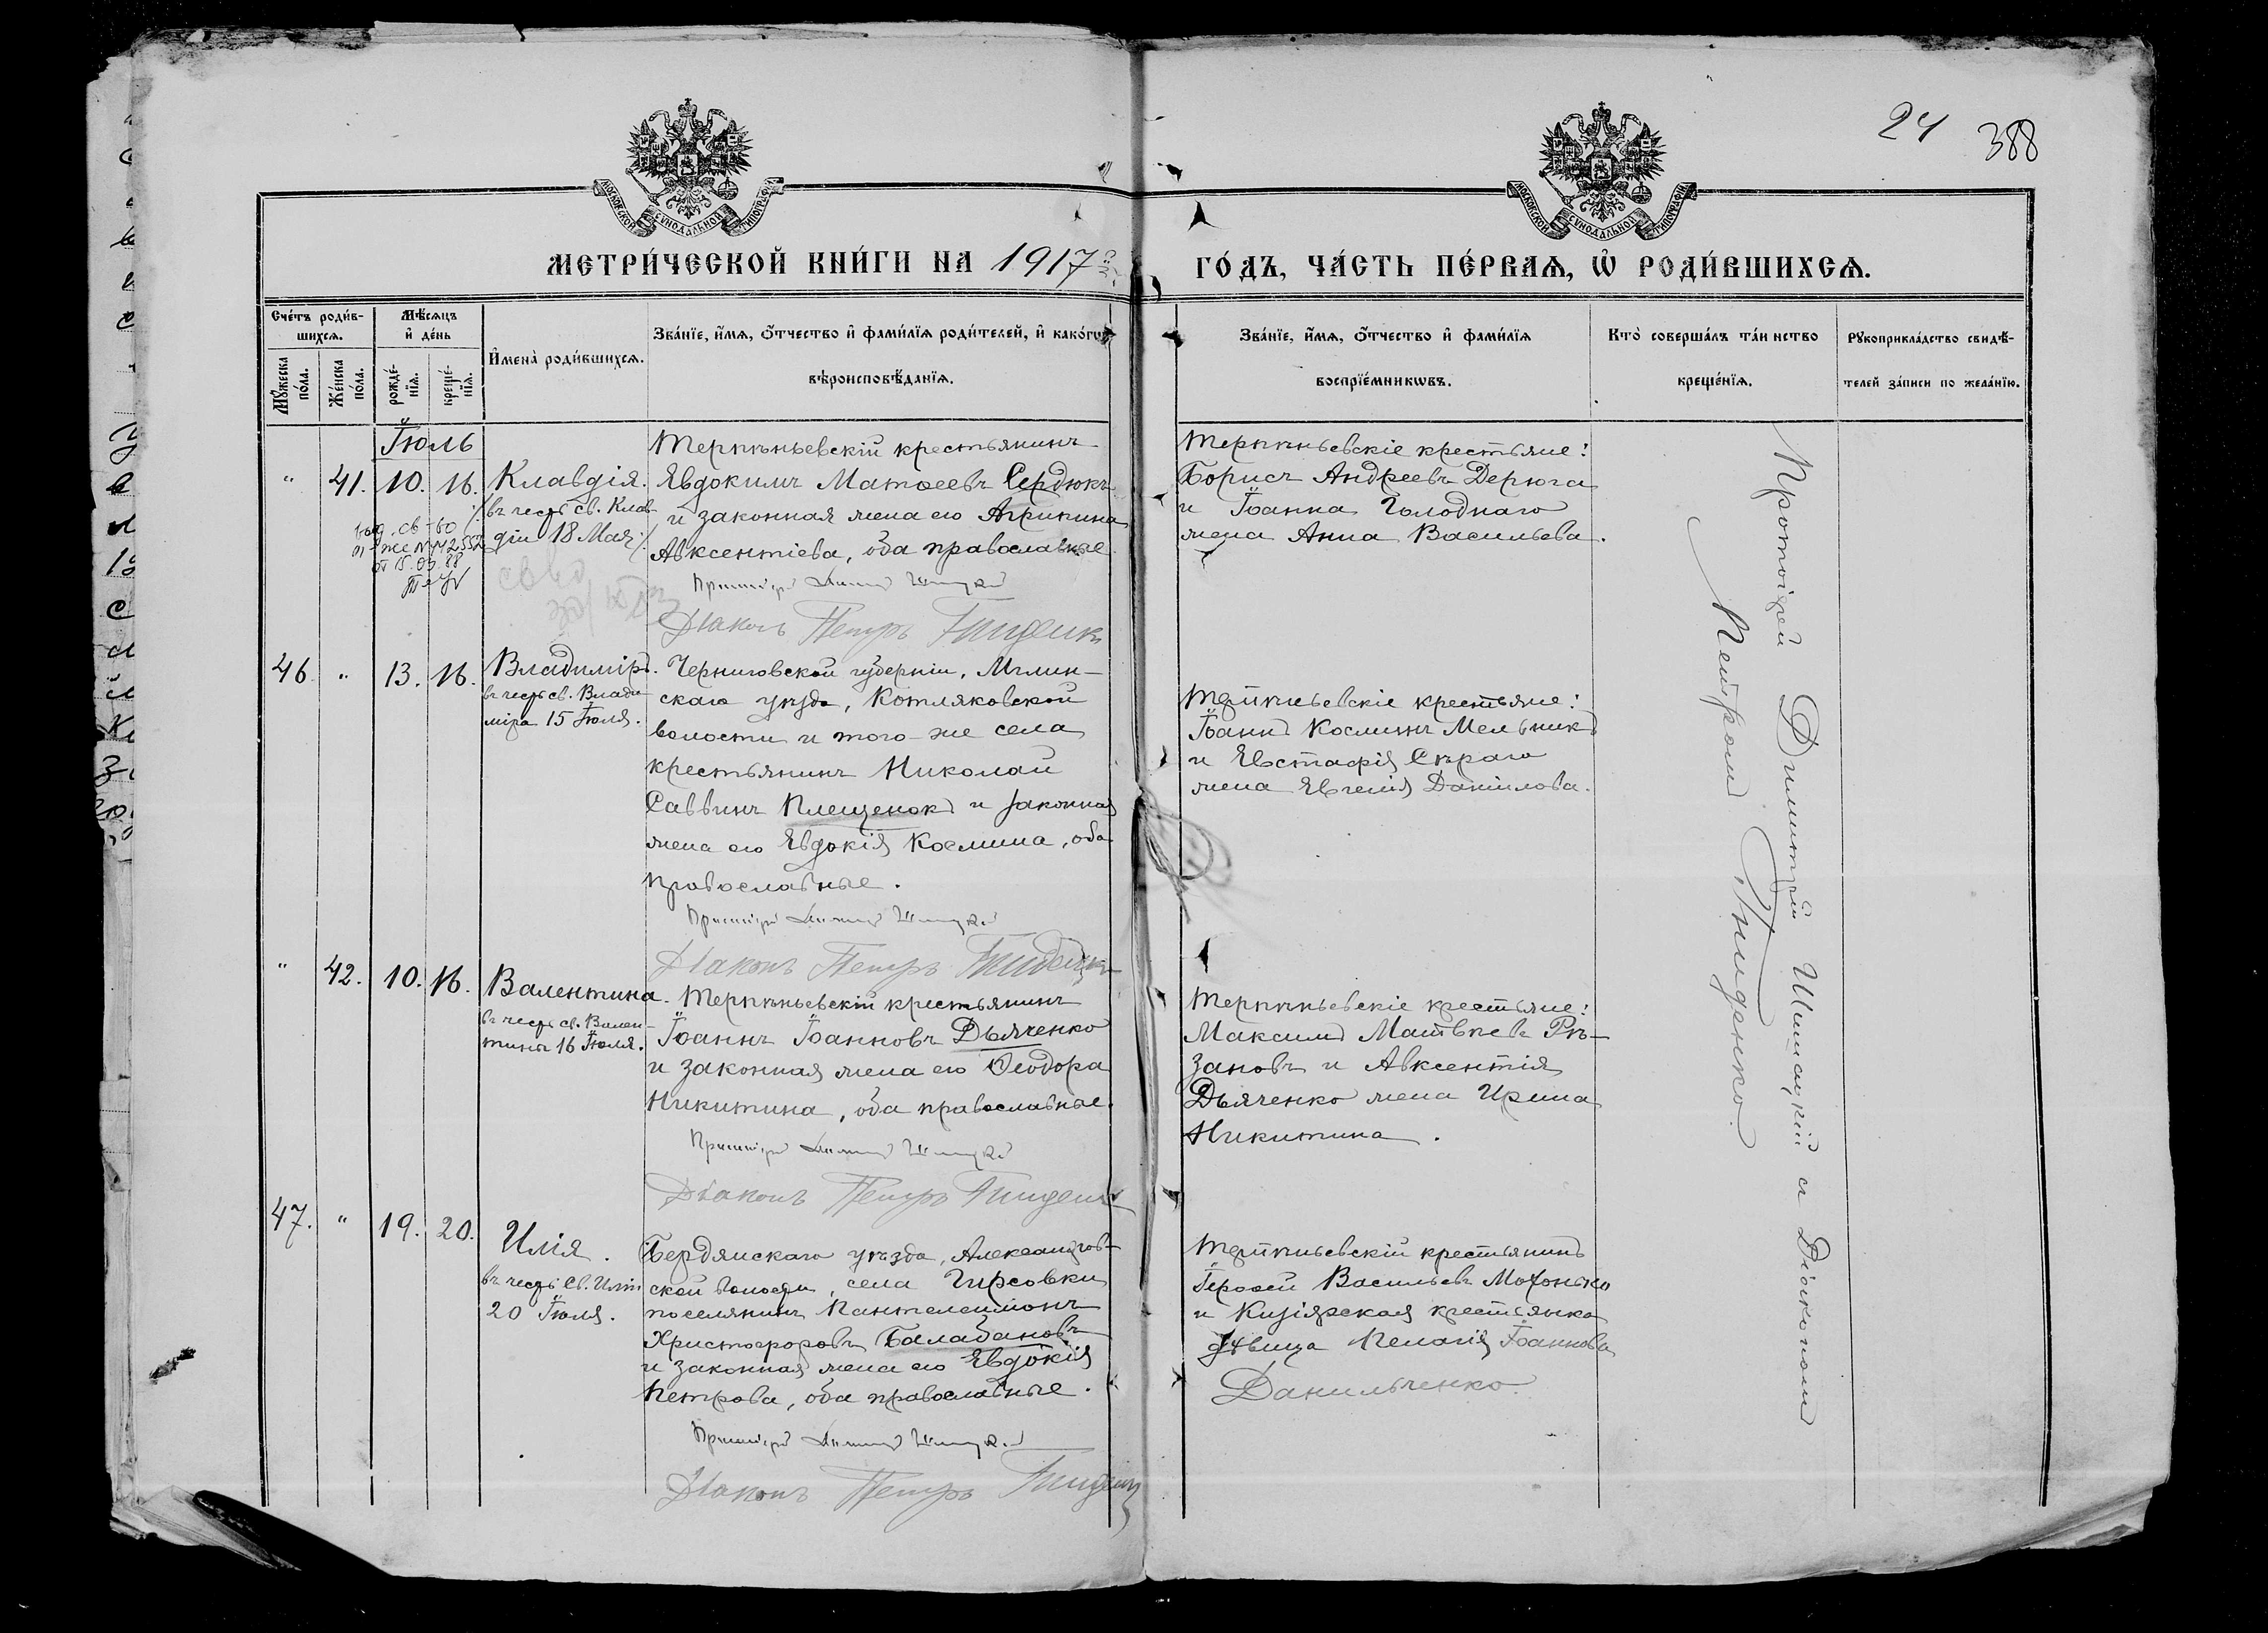 24 388
МОСКОВСКОЙ СѴНОДАЛЬНОЙ ТИПОГРАФІИ
МОСКОВСКОЙ СѴНОДАЛЬНОЙ ТИПОГРАФІИ
МЕТРИ́ЧЕСКОЙ КНИ́ГИ НА 1917 ГО́ДЪ, ЧА́СТЬ ПЕ́РВАѦ, Ѡ҆ РОДИ́ВШИХСѦ.
Сче́тъ роди́в-
шихсѧ.
Мꙋ́жеска по́ла.
Же́нска по́ла.
Мѣ́сѧцъ и҆ де́нь
рожде́-нїѧ.
креще́-нїѧ.
И҆мена̀ роди́вшихсѧ.
Зва́нїе, и҆́мѧ, ѻ҆́тчество и҆ фами́лїѧ роди́телей, и҆ како́гѡ
вѣроисповѣ́данїѧ.
Зва́нїе, и҆́мѧ, ѻ҆́тчество и҆ фами́лїѧ
воспрїе́мникѡвъ.
Кто̀ соверша́лъ та́инство
креще́нїѧ.
Рꙋкоприкла́дство свидѣ́-
телей за́писи по жела́нїю.
Іюль
" 41. 10. 16. Клавдія.
въ честь св. Клав-
діи 18 Мая.
выд. св-во
от 15.03.88
Терпѣньевскій крестьянинъ
Евдокимъ Матѳеевъ Сердюкъ
и законная жена его Агрипина
Авксентіева, оба православные.
Діаконъ Петръ Гниденко
Терпѣньевскіе крестьяне:
Борисъ Андреевъ Дерюга
и Іоанна Голоднаго
жена Анна Васильева.
46. " 13. 16. Владиміръ.
въ честь св. Влади-
міра 15 Іюля.
Черниговской губерніи, Мглин-
скаго уѣзда, Котляковской
волости и того-же села
крестьянинъ Николай
Саввинъ Плещенокъ и законная
жена его Евдокія Космина, оба
православные.
Діаконъ Петръ Гниденко
Терпѣньевскіе крестьяне:
Іоаннъ Косминъ Мельникъ
и Евстафія Сѣраго
жена Евгенія Даніилова.
" 42. 10. 16. Валентина.
въ честь св. Вален-
тины 16 Іюля.
Терпѣньевскій крестьянинъ
Іоаннъ Іоанновъ Дьяченко
и законная жена его Ѳеодора
Никитина, оба православные.
Діаконъ Петръ Гниденко
Терпѣньевскіе крестьяне:
Максимъ Матвѣевъ Рѣ-
зановъ и Авксентія
Дьяченко жена Ирина
Никитина.
47. " 19. 20. Илія.
въ честь св. Иліи
20 Іюля.
Бердянскаго уѣзда, Александров-
ской волости, села Гирсовки
поселянинъ Пантелеимонъ
Христофоровъ Балабановъ
и законная жена его Евдокія
Петрова, оба православные.
Діаконъ Петръ Гниденко
Терпѣньевскій крестьянинъ
Іероѳей Васильевъ Мохонько
и Кизіярская крестьянка
дѣвица Пелагія Іоаннова
Данильченко.
Протоіерей Димитрій Шишацкій и Діакономъ
Петромъ Гниденко.